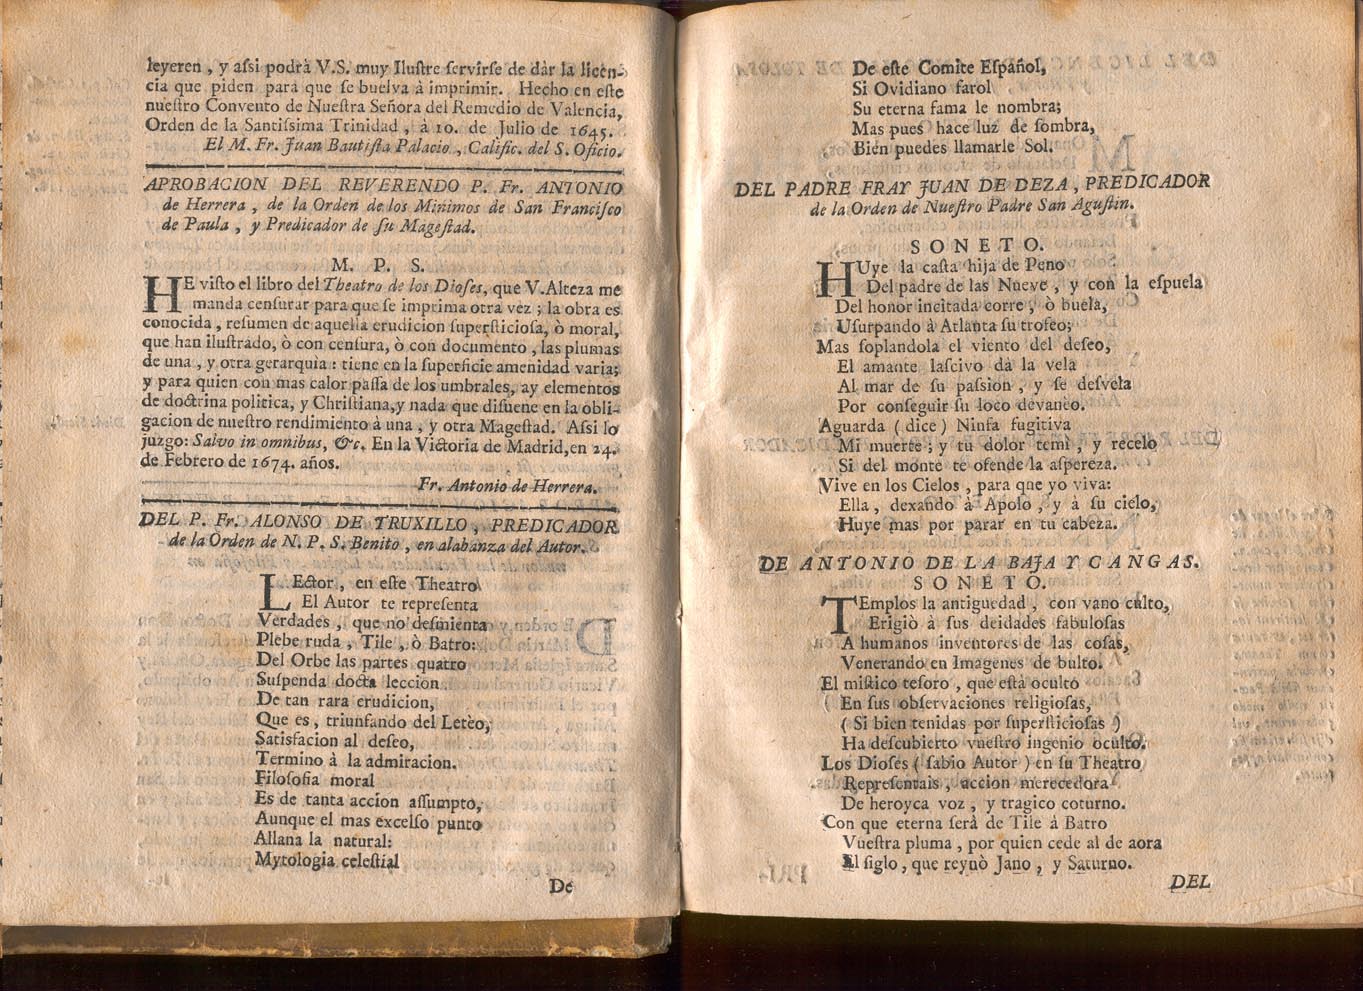 leyeren, y aſsi podrà V.S. muy Iluſtre ſervirſe de dàr la licen-
cia que piden para que ſe buelva à imprimir. Hecho en eſte
nueſtro Convento de Nueſtra Señora del Remedio de Valencia,
Orden de la Santiſsima Trinidad, à 10. de Julio de 1645.
El M. Fr. Juan Bautiſta Palacio, Calific. del S. Oficio.
APROBACION DEL REVERENDO P. Fr. ANTONIO
de Herrera, de la Orden de los Minimos de San Franciſco
de Paula, y Predicador de ſu Mageſtad.
M. P. S.
HE viſto el libro del Theatro de los Dioſes, que V. Alteza me
manda cenſurar para que ſe imprima otra vez; la obra es
conocida, reſumen de aquella erudicion ſuperſticioſa, ò moral,
que han iluſtrado, ò con cenſura, ò con documento, las plumas
de una, y otra gerarquìa: tiene en la ſuperficie amenidad varia;
y para quien con mas calor paſſa de los umbrales, ay elementos
de doctrina politica, y Chriſtiana, y nada que diſuene en la obli-
gacion de nueſtro rendimiento à una, y otra Mageſtad. Aſsi lo
juzgo: Salvo in omnibus, &c. En la Victoria de Madrid, en 24.
de Febrero de 1674. años.
Fr. Antonio de Herrera.
DEL P. Fr. ALONSO DE TRUXILLO, PREDICADOR
de la Orden de N. P. S. Benito, en alabanza del Autor.
LEctor, en eſte Theatro
El Autor te repreſenta
Verdades, que no deſmienta
Plebe ruda, Tile, ò Batro:
Del Orbe las partes quatro
Suſpenda docta leccion
De tan rara erudicion,
Que es, triunfando del Letèo,
Satisfacion al deſeo,
Termino à la admiracion.
Filoſofia moral
Es de tanta accion aſſumpto,
Aunque el mas excelſo punto
Allana la natural:
Mytologia celeſtial
De
De eſte Comite Eſpañol,
Si Ovidiano farol
Su eterna fama le nombra;
Mas pues hace luz de ſombra,
Bien puedes llamarle Sol.
DEL PADRE FRAY JUAN DE DEZA, PREDICADOR
de la Orden de Nueſtro Padre San Aguſtin.
SONETO.
HUye la caſta hija de Peno
Del padre de las Nueve, y con la eſpuela
Del honor incitada corre, ò buela,
Uſurpando à Atlanta ſu trofeo;
Mas ſoplandola el viento del deſeo,
El amante laſcivo dà la vela
Al mar de ſu paſsion, y ſe deſvela
Por conſeguir ſu loco devanèo.
Aguarda (dice) Ninfa fugitiva
Mi muerte; y tu dolor temì, y recelo
Si del monte te ofende la aſpereza.
Vive en los Cielos, para que yo viva:
Ella, dexando à Apolo, y à ſu cielo,
Huye mas por parar en tu cabeza.
DE ANTONIO DE LA BAJA Y CANGAS.
SONETO.
TEmplos la antiguedad, con vano culto,
Erigiò à ſus deidades fabuloſas
A humanos inventores de las coſas,
Venerando en Imagenes de bulto.
El miſtico teſoro, que eſtà oculto
En ſus obſervaciones religioſas,
(Si bien tenidas por ſuperſticioſas)
Ha deſcubierto vueſtro ingenio oculto.
Los Dioſes (ſabio Autor) en ſu Theatro
Repreſentais, accion merecedora
De heroyca voz, y tragico coturno.
Con que eterna ſerà de Tile à Batro
Vueſtra pluma, por quien cede al de aora
El ſiglo, que reynò Jano, y Saturno.
DEL